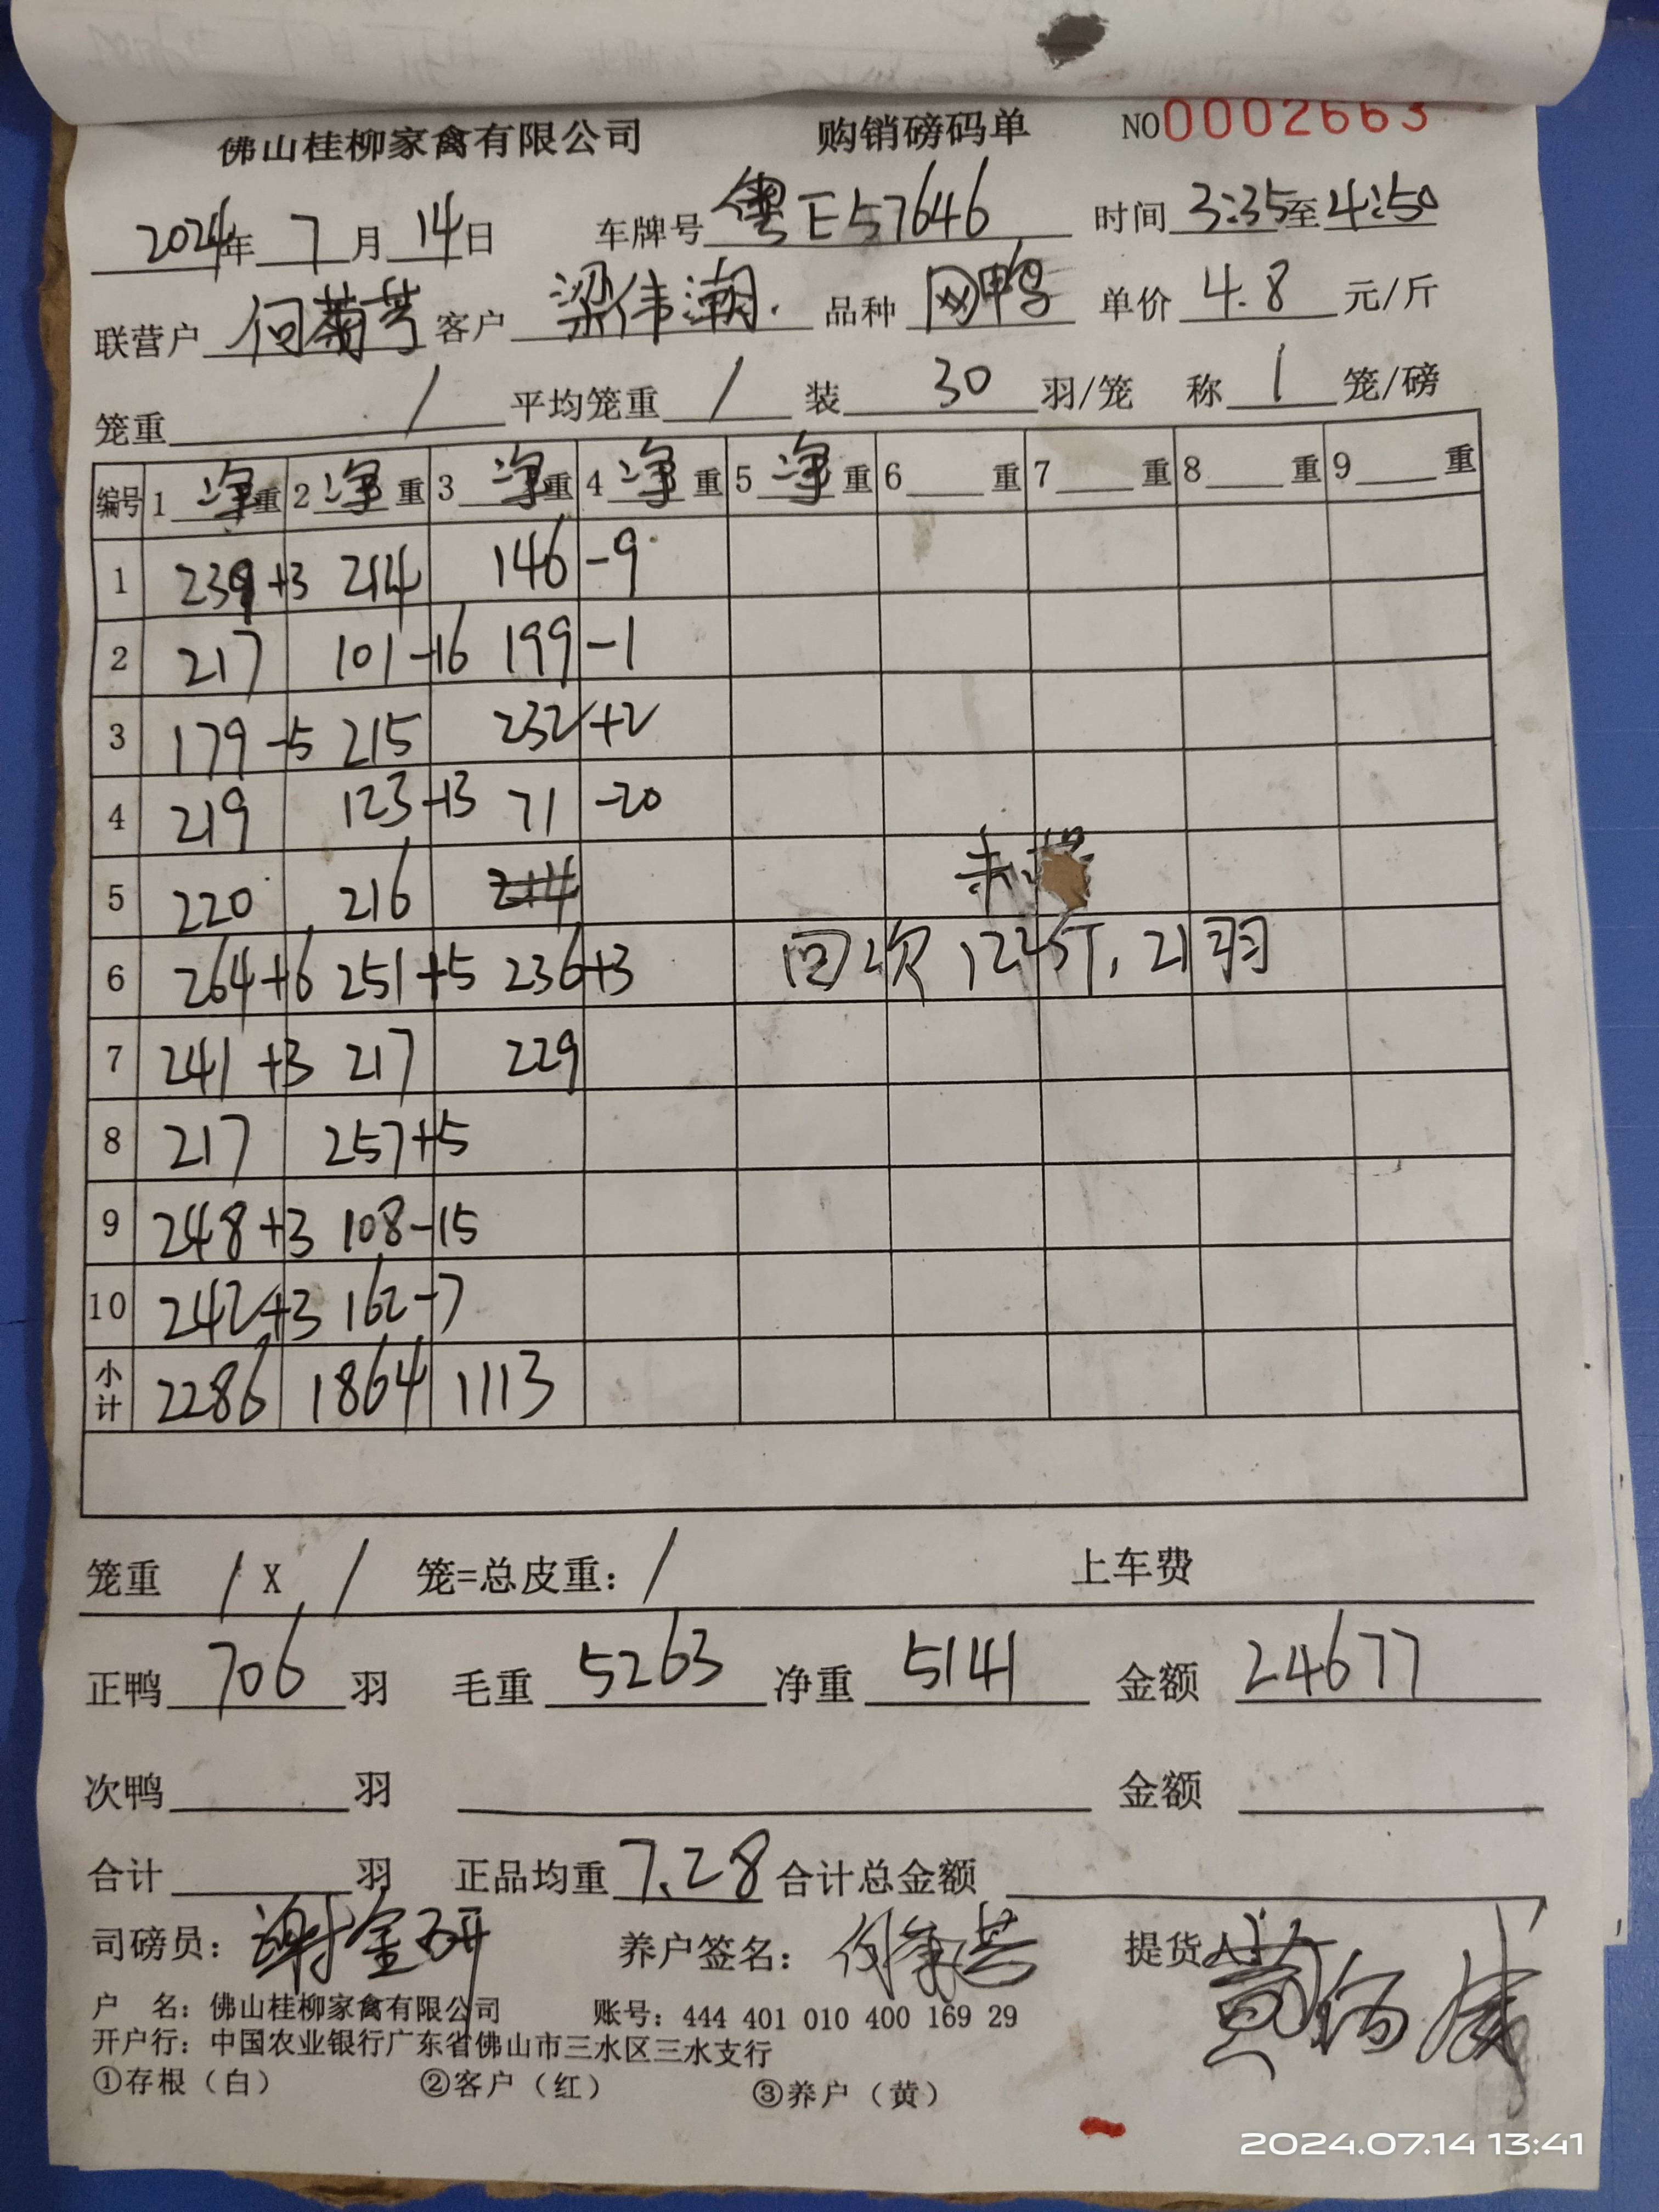 佛山桂柳家禽有限公司 购销磅码单 NO0002663
2024年 7 月 14日 车牌号 粤E57646 时间 3:35至4:50
联营户 何菊芳 客户 梁伟潮. 品种 网鸭 单价 4.8 元/斤
笼重 / 平均笼重 / 装 30 羽/笼 称 1 笼/磅
编号 1 净重 2 净重 3 净重 4 净重 5 净重 6 重 7 重 8 重 9 重
1 239+3 214 146-9
2 217 101-16 199-1
3 179-5 215 232+2
4 219 123-13 71 -20
5 220 216 214
6 264+6 251+5 236+3 回次122斤,21羽
7 241+3 217 229
8 217 257+5
9 248+3 108-15
10 242+3 162-7
小计 2286 1864 1113
笼重 / X / 笼=总皮重: / 上车费
正鸭 706 羽 毛重 5263 净重 5141 金额 24677
次鸭 羽 金额
合计 羽 正品均重 7.28 合计总金额
司磅员: 谢金研 养户签名: 提货人:
户 名: 佛山桂柳家禽有限公司 账号: 444 401 010 400 169 29
开户行: 中国农业银行广东省佛山市三水区三水支行
①存根（白） ②客户（红） ③养户（黄）
2024.07.14 13:41